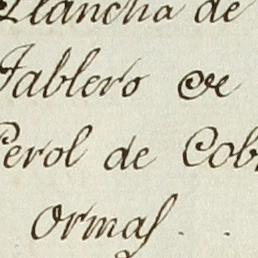 Llancha de
Tablero de
Perol de Cob
ormas . .